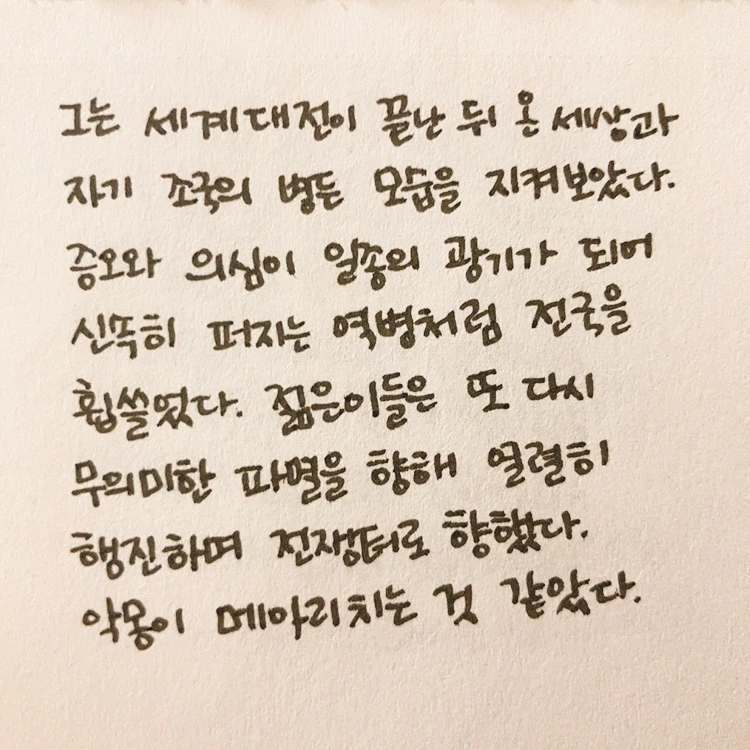 그는 세계대전이 끝난 뒤 온 세상과
자기 조국의 병든 모습을 지켜보았다.
증오와 의심이 일종의 광기가 되어
신속히 퍼지는 역병처럼 전국을
휩쓸었다. 젊은이들은 또 다시
무의미한 파멸을 향해 열렬히
행진하며 전쟁터로 향했다.
악몽이 메아리치는 것 같았다.